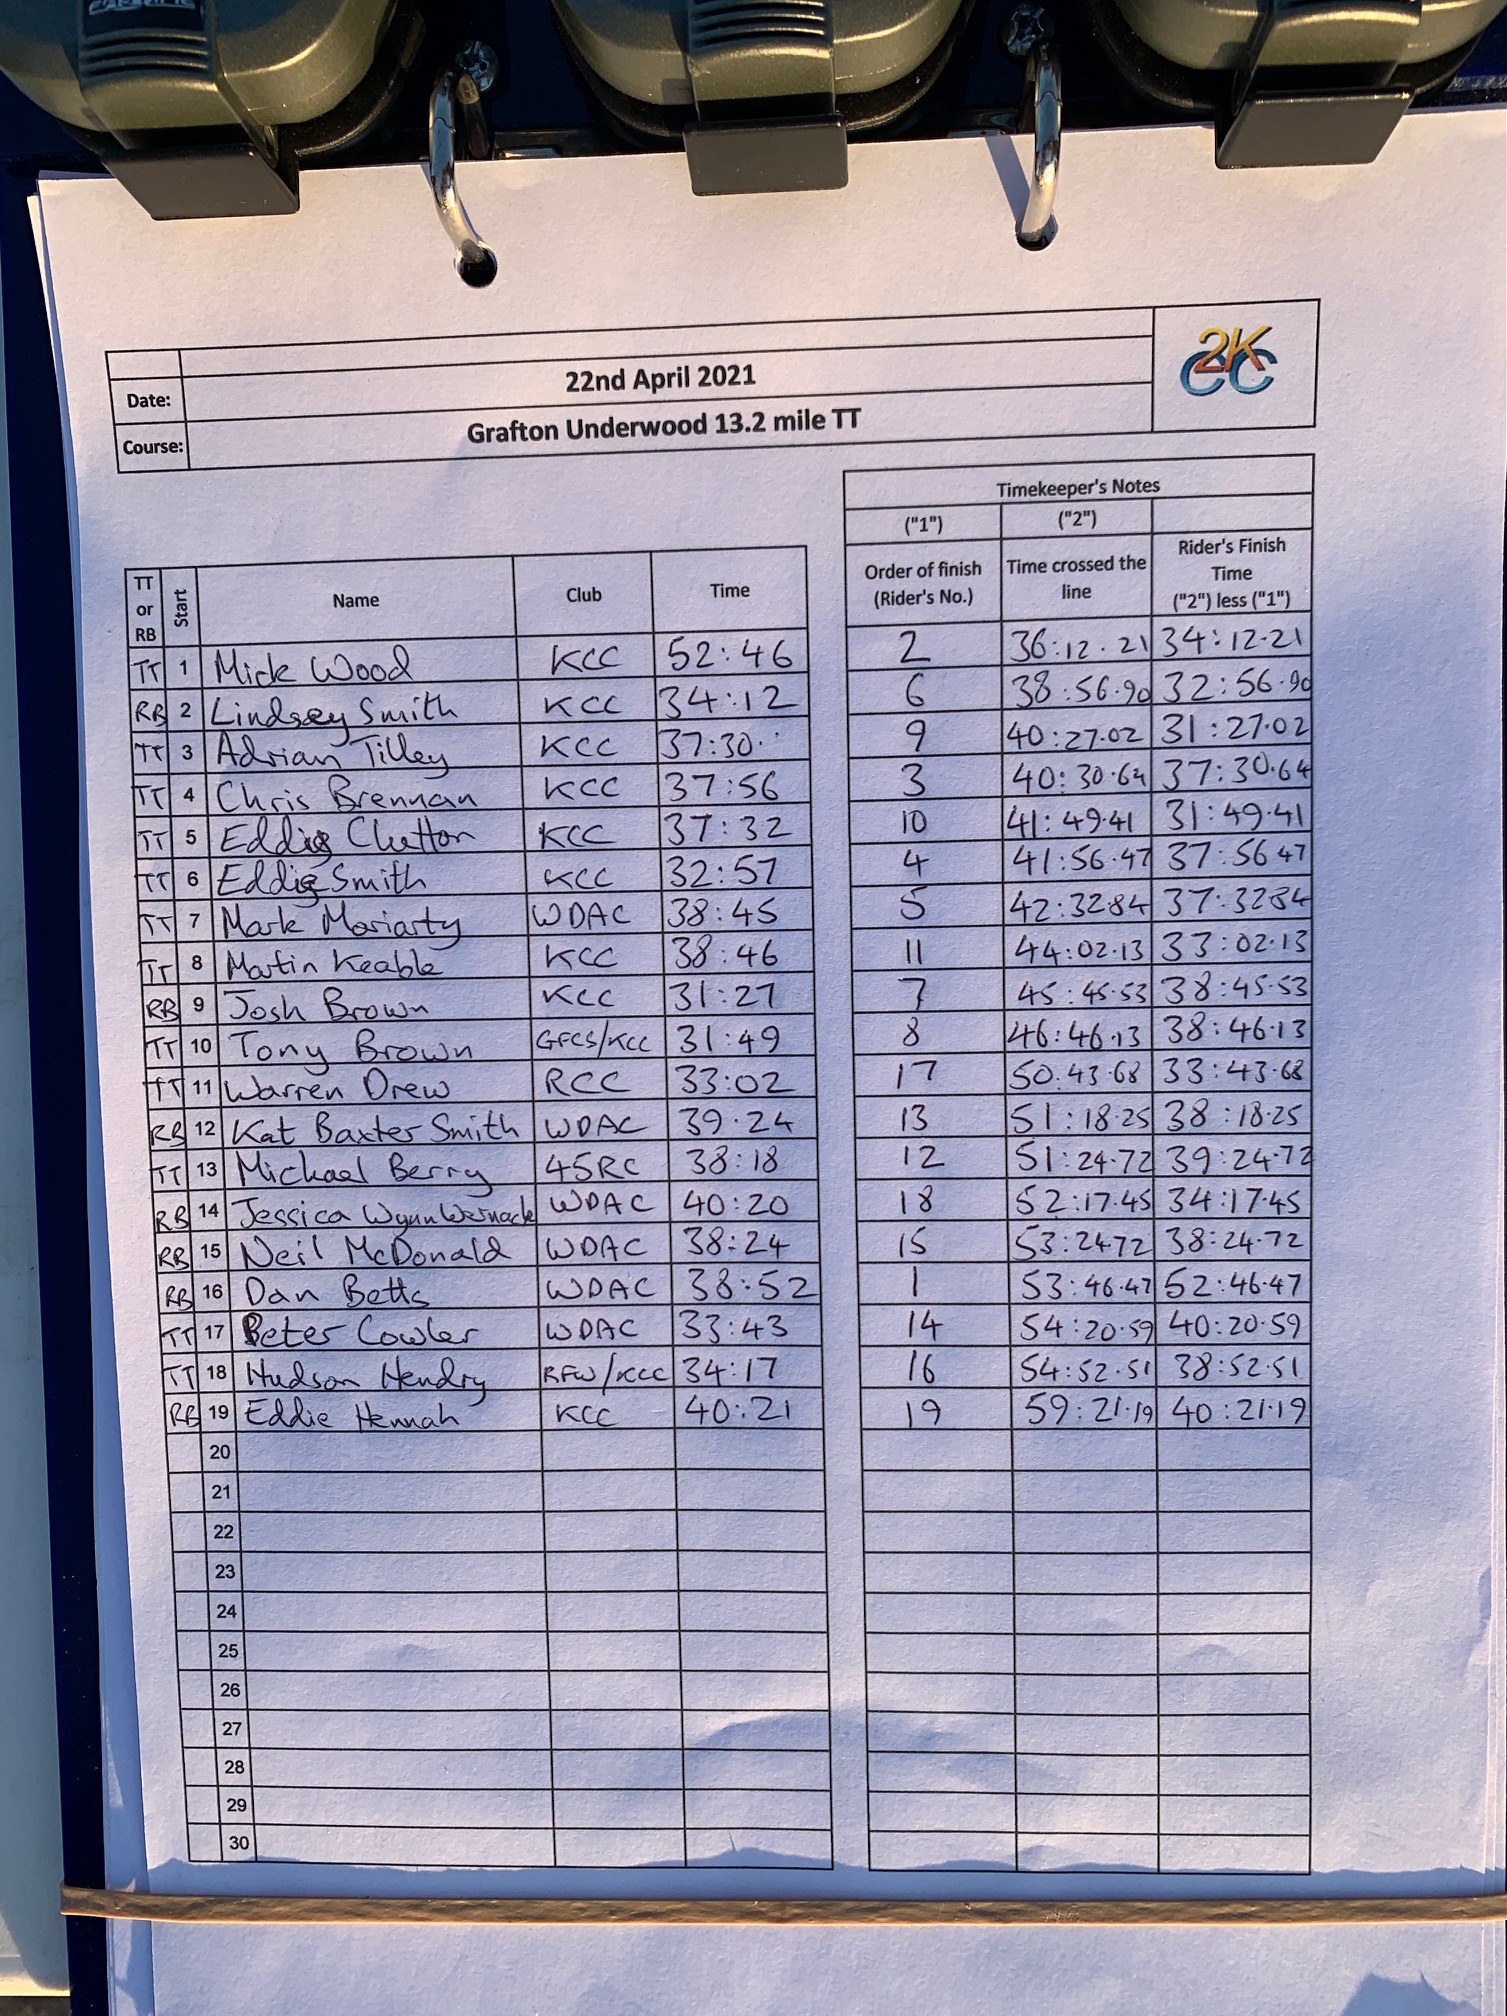 2KCC
Date: 22nd April 2021
Course: Grafton Underwood 13.2 mile TT
Timekeeper's Notes
("1") ("2")
TT or RB Start Name Club Time
Order of finish (Rider's No.) Time crossed the line Rider's Finish Time ("2") less ("1")
TT 1 Mick Wood KCC 52:46
RB 2 Lindsey Smith KCC 34:12
TT 3 Adrian Tilley KCC 37:30
TT 4 Chris Brennan KCC 37:56
TT 5 Eddie Clutton KCC 37:32
TT 6 Eddie Smith KCC 32:57
TT 7 Mark Moriarty WDAC 38:45
TT 8 Martin Keable KCC 38:46
RB 9 Josh Brown KCC 31:27
TT 10 Tony Brown GFCS/KCC 31:49
TT 11 Warren Drew RCC 33:02
RB 12 Kat Baxter Smith WDAC 39.24
TT 13 Michael Berry 45RC 38:18
RB 14 Jessica WDAC 40:20
RB 15 Neil McDonald WDAC 38:24
RB 16 Dan Betts WDAC 38:52
TT 17 Peter Cowler WDAC 33:43
TT 18 Hudson Hendry RFW/KCC 34:17
RB 19 Eddie Hennah KCC 40:21
20
21
22
23
24
25
26
27
28
29
30
2 36:12.21 34:12.21
6 38:56.90 32:56.90
9 40:27.02 31:27.02
3 40:30.64 37:30.64
10 41:49.41 31:49.41
4 41:56.47 37:56 47
5 42:32.84 37:32 84
11 44:02.13 33:02.13
7 45:45.53 38:45.53
8 46:46.13 38:46.13
17 50:43.68 33:43.68
13 51:18.25 38:18.25
12 51:24.72 39:24.72
18 52:17.45 34:17.45
15 53:24 72 38:24.72
1 53:46.47 52:46.47
14 54:20.59 40:20.59
16 54:52.51 38:52.51
19 59:21.19 40:21.19